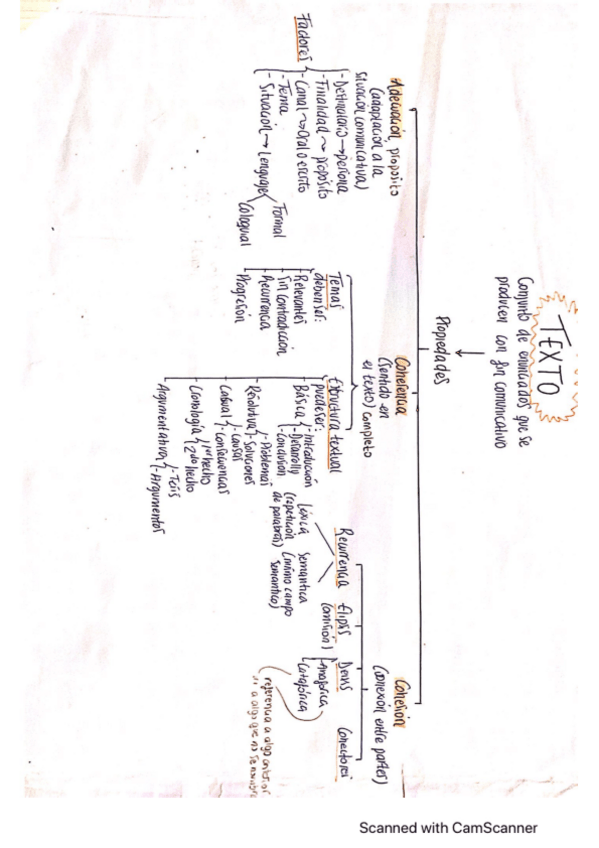 TEXTO
Conjunto de enunciados que se
producen con fin comunicativo
Propiedades
Adecuación, propósito
(adaptación a la
situación comunicativa)
Factores
- Destinatario → persona
- Finalidad → propósito
- Canal → Oral o escrito
- Tema
- Situación → Lenguaje
Formal
Coloquial
Coherencia
(sentido en
el texto) completo
Temas
deben ser:
- Relevantes
- Sin contradicción
- Recurrencia
- Progresión
Estructura textual
puede ser:
Básica
- Introducción
- Desarrollo
- Conclusión
Resolutiva
- Problemas
- Soluciones
Causal
- Causas
- Consecuencias
Cronología
1er hecho
2do hecho
Argumentativa
- Tesis
- Argumentos
Cohesión
(conexión entre partes)
Recurrencia
Léxica
(repetición
de palabras)
semántica
(mismo campo
semántico)
Elipsis
(omisión)
Deixis
Anafórica
Catafórica
referencia a algo anterior
a algo que no se nombra
Conectores
Scanned with CamScanner